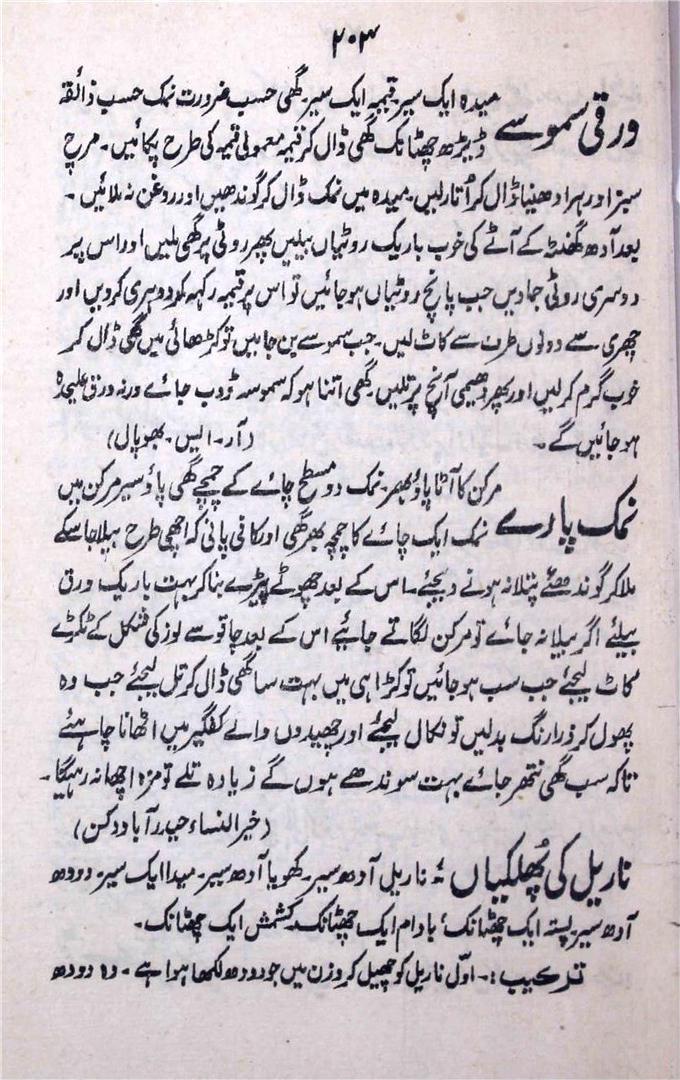 ۲۰۳
ورقی سموسے میدہ ایک سیر۔ قیمہ ایک سیر۔ گھی حسب ضرورت نمک حسب ذائقہ
ڈیڑھ چھٹانک گھی ڈال کر قیمہ معمولی قیمہ کی طرح پکائیں۔ مرچ
سبز اور ہرا دھنیا ڈال کر اُتار لیں۔ میدہ میں نمک ڈال کر گوندھیں اور روغن نہ ملائیں۔
بعد آدھ گھنٹہ کے آٹے کی خوب باریک روٹیاں بیلیں پھر روٹی پر گھی ملیں اور اس پر
دوسری روٹی جما دیں جب پانچ روٹیاں ہو جائیں تو اس پر قیمہ رکھ کر دوہری کر دیں اور
چھری سے دونوں طرف سے کاٹ لیں۔ جب سموسے بن جائیں تو کڑھائی میں گھی ڈال کر
خوب گرم کر لیں اور پھر دھیمی آنچ پر تلیں۔ گھی اتنا ہو کہ سموسہ ڈوب جائے ورنہ ورق علیحدہ
ہو جائیں گے۔ (آر۔ ایس۔ بھوپال)
نمک پارے مرکن کا آٹا پاؤ بھر۔ نمک دو مسطح چائے کے چمچے گھی پاؤ سیر مرکن میں
نمک ایک چائے کا چمچہ بھر گھی اور کافی پانی کہ اچھی طرح بیلا جا سکے
ملا کر گوندھئے پتلا نہ ہونے دیجئے۔ اس کے بعد چھوٹے پیڑے بنا کر بہت باریک ورق
بیلئے اگر بیلا نہ جائے تو مرکن لگاتے جائیے اس کے بعد چاقو سے لوز کی شکل کے ٹکڑے
کاٹ لیجئے جب سب ہو جائیں تو کڑاہی میں بہت سا گھی ڈال کر تل لیجئے جب وہ
پھول کر ذرا رنگ بدلیں تو نکال لیجئے اور چھیدوں والے کفگیر میں اٹھانا چاہئے
تاکہ سب گھی نتھر جائے بہت سوندھے ہوں گے زیادہ تلے تو مزہ اچھا نہ رہیگا۔
(خیر النساء حیدرآباد دکن)
ناریل کی پُھلکیاں ناریل آدھ سیر۔ کھویا آدھ سیر۔ میدا ایک سیر۔ دودھ
آدھ سیر۔ پستہ ایک چھٹانک، بادام ایک چھٹانک کشمش ایک چھٹانک۔
ترکیب:۔ اوّل ناریل کو چھیل کر وزن میں جو دودھ لکھا ہوا ہے۔ وہ دودھ